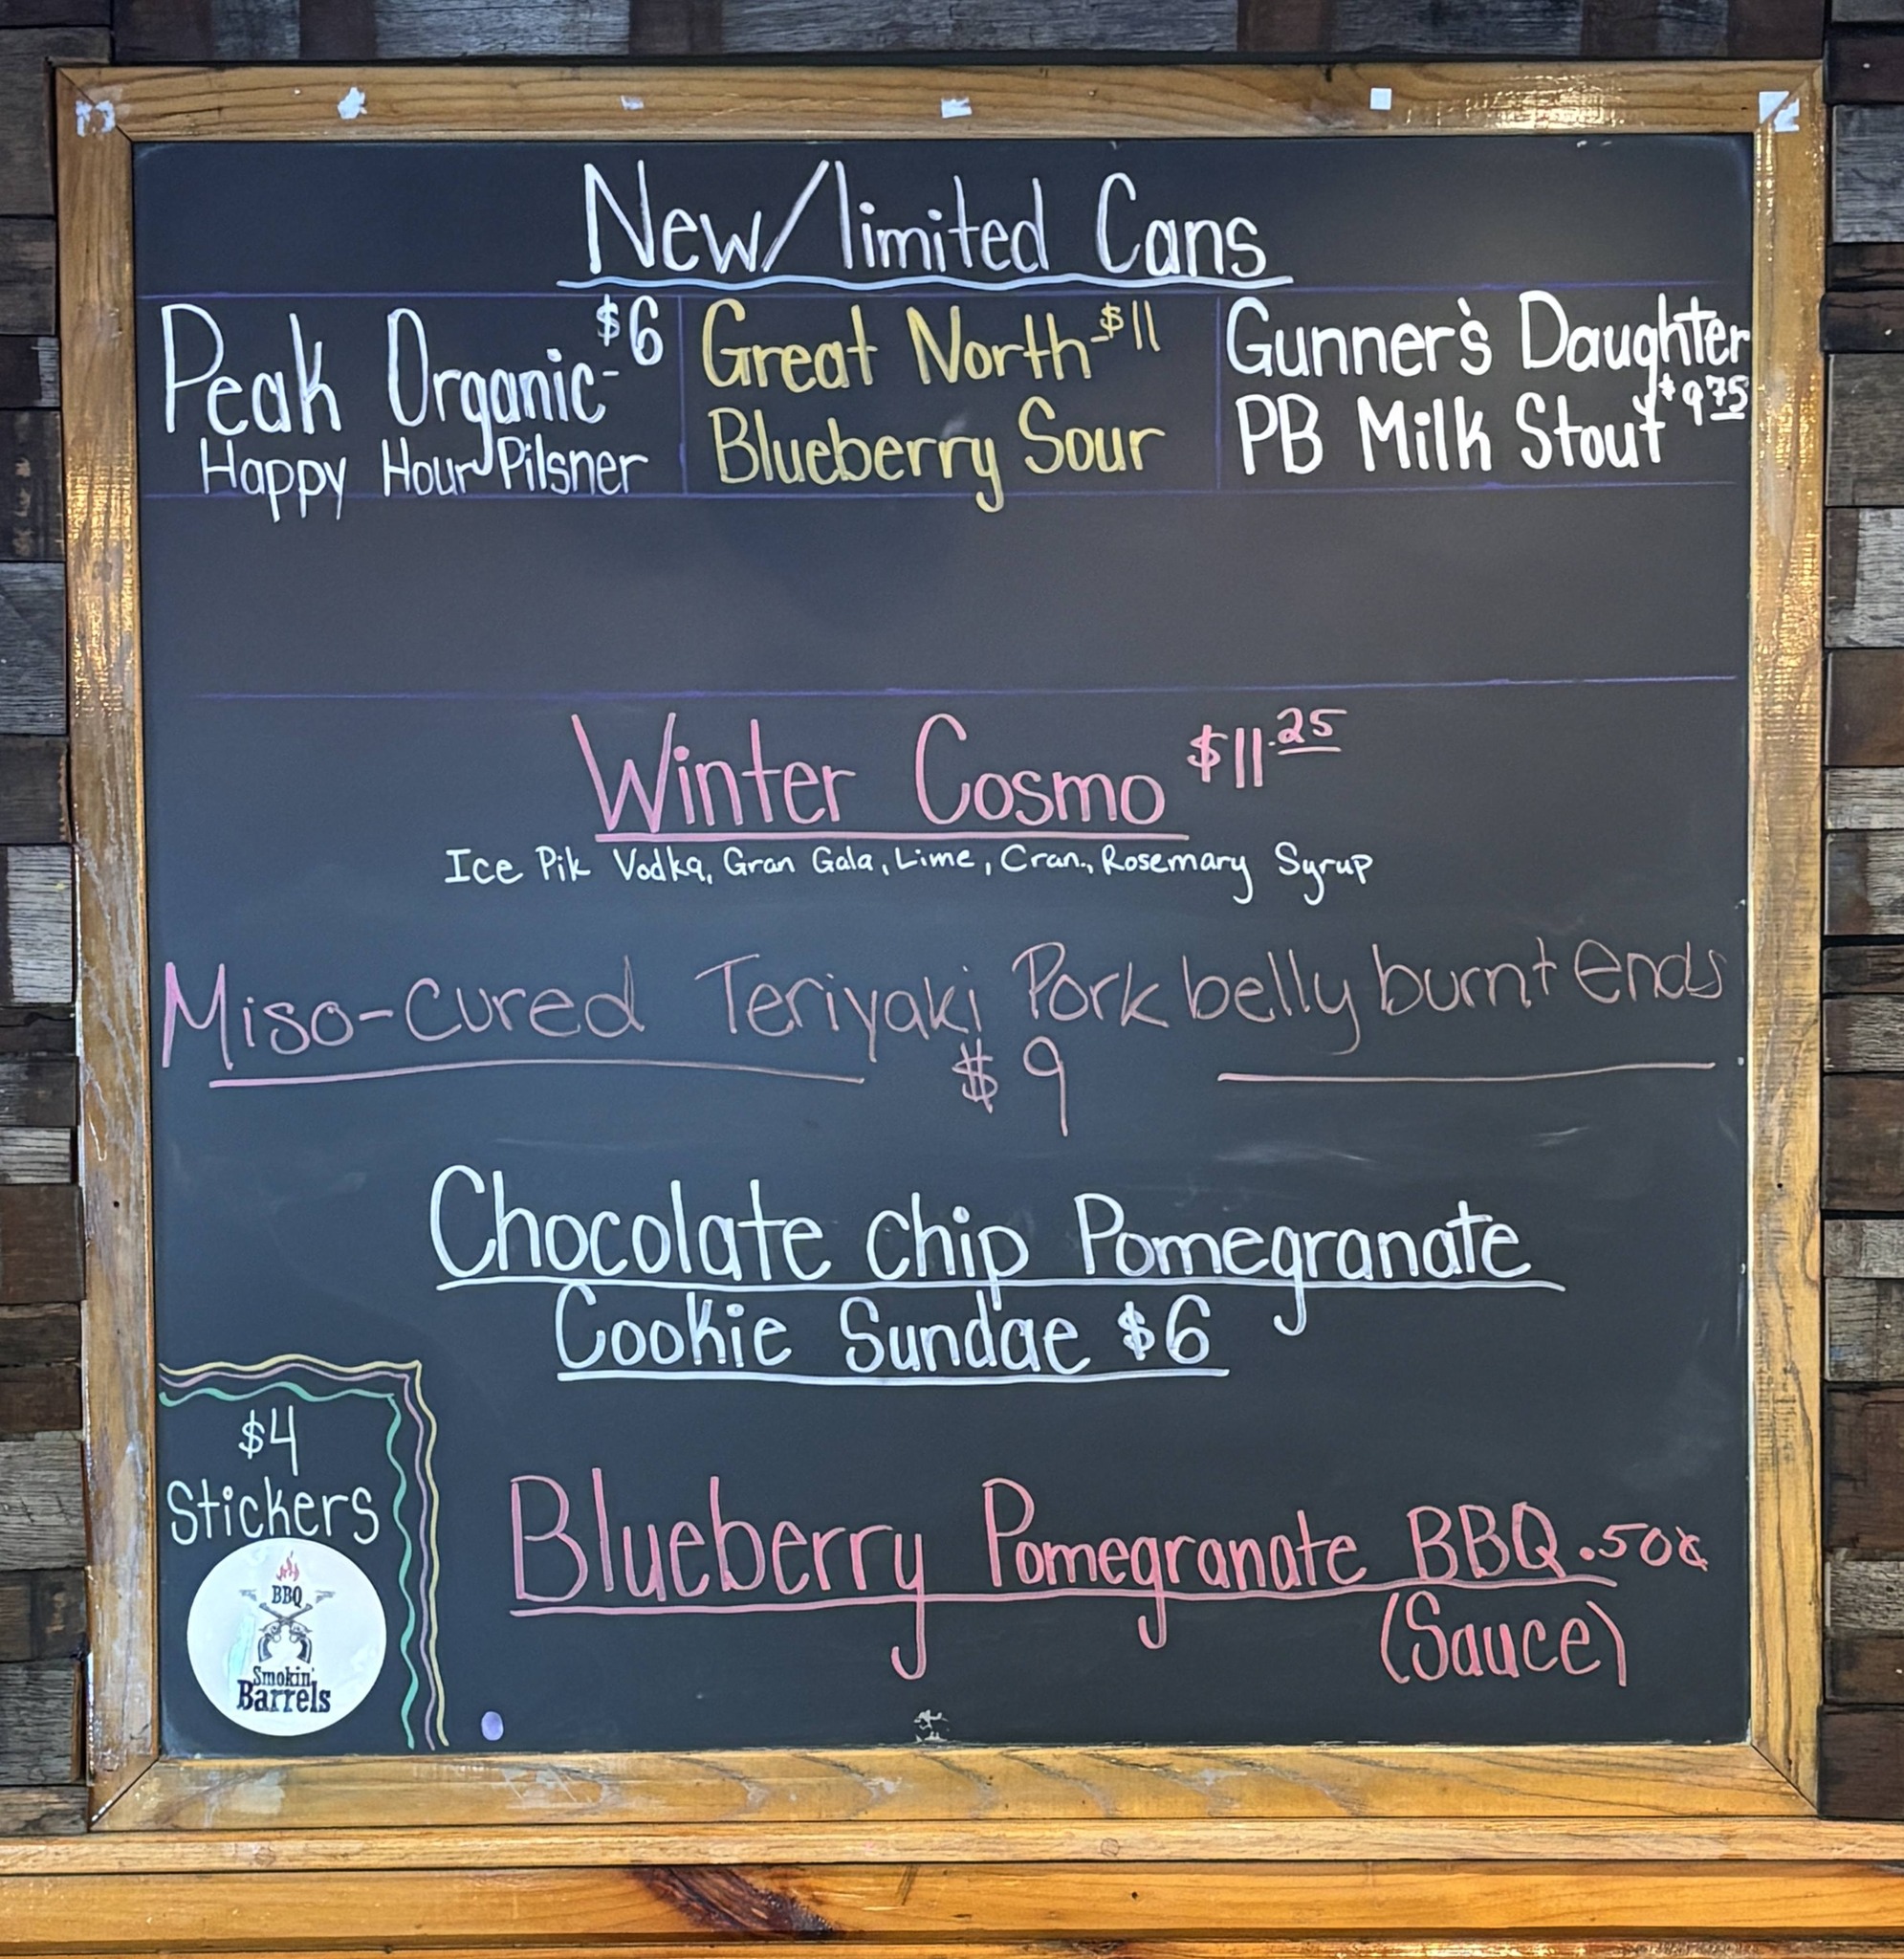 New/limited Cans
Peak Organic - $6
Happy Hour Pilsner
Great North - $11
Blueberry Sour
Gunner's Daughter
PB Milk Stout $9.75
Winter Cosmo $11.25
Ice Pik Vodka, Gran Gala, Lime, Cran., Rosemary Syrup
Miso-Cured Teriyaki Pork belly burnt ends
$9
Chocolate chip Pomegranate
Cookie Sundae $6
$4
Stickers
BBQ
Smokin'
Barrels
Blueberry Pomegranate BBQ .50¢
(Sauce)